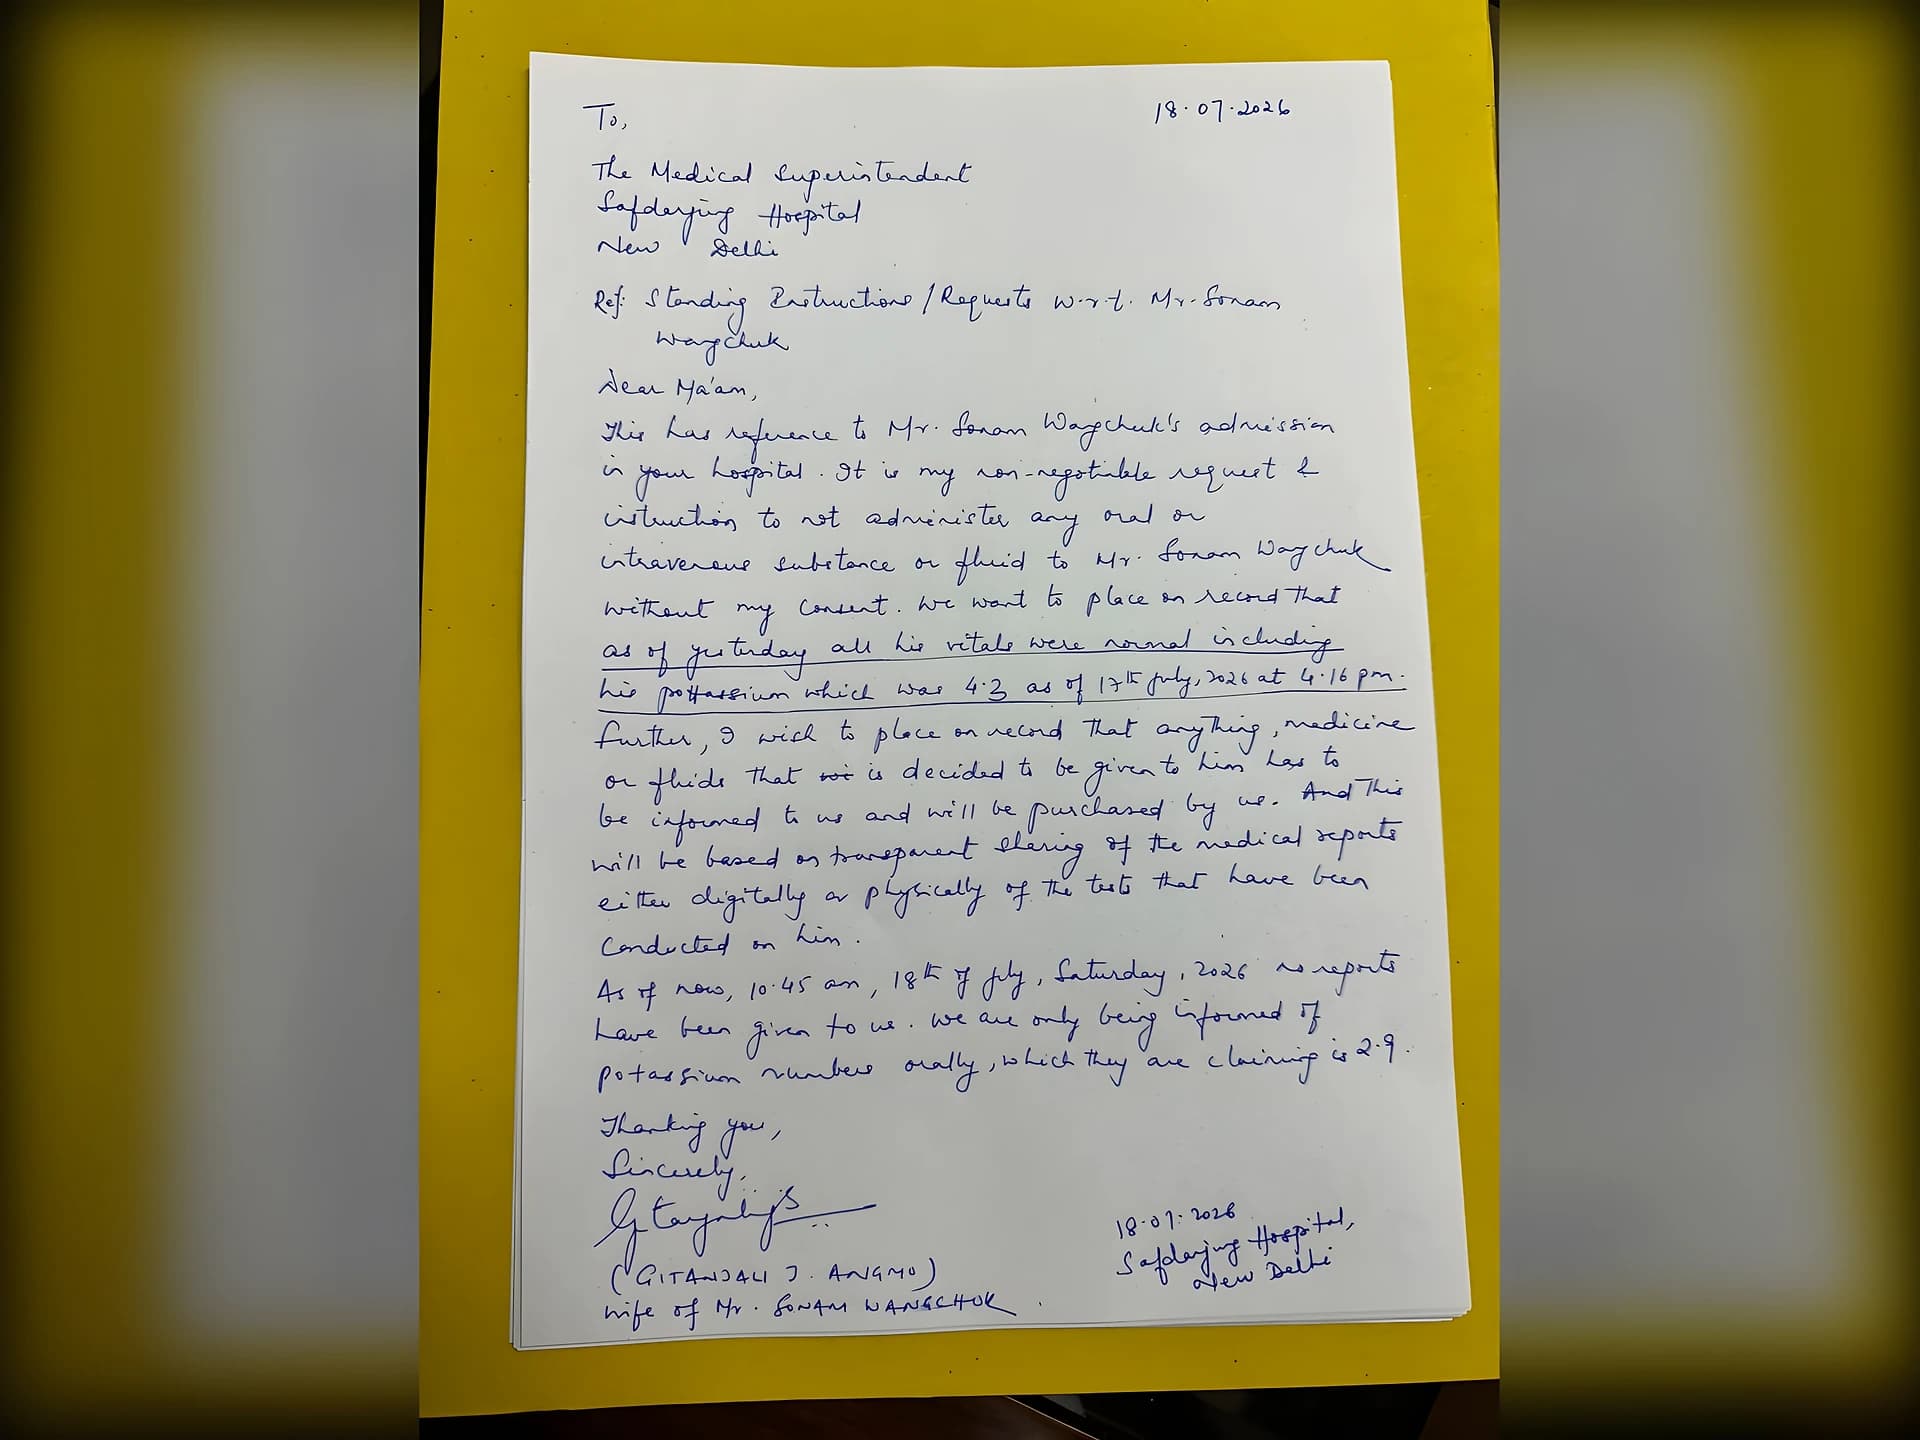 To,
18.07.2026
The Medical Superintendent
Safdarjung Hospital
New Delhi
Ref: Standing Instructions/Requests w.r.t. Mr. Sonam
Wangchuk
Dear Ma'am,
This has reference to Mr. Sonam Wangchuk's admission
in your hospital. It is my non-negotiable request &
instruction to not administer any oral or
intravenous substance or fluid to Mr. Sonam Wangchuk
without my consent. We want to place on record that
as of yesterday all his vitals were normal including
his pottassium which was 4.3 as of 17th July, 2026 at 4.16 pm.
Further, I wish to place on record that anything, medicine
or fluids that is decided to be given to him has to
be informed to us and will be purchased by us. And This
will be based on transparent sharing of the medical reports
either digitally or physically of the tests that have been
conducted on him.
As of now, 10.45 am, 18th of July, Saturday, 2026 no reports
have been given to us. We are only being informed of
potassium numbers orally, which they are claiming is 2.9.
Thanking you,
Sincerely,
(GITANJALI J. ANGMO)
wife of Mr. SONAM WANGCHUK.
18.07.2026
Safdarjung Hospital,
New Delhi